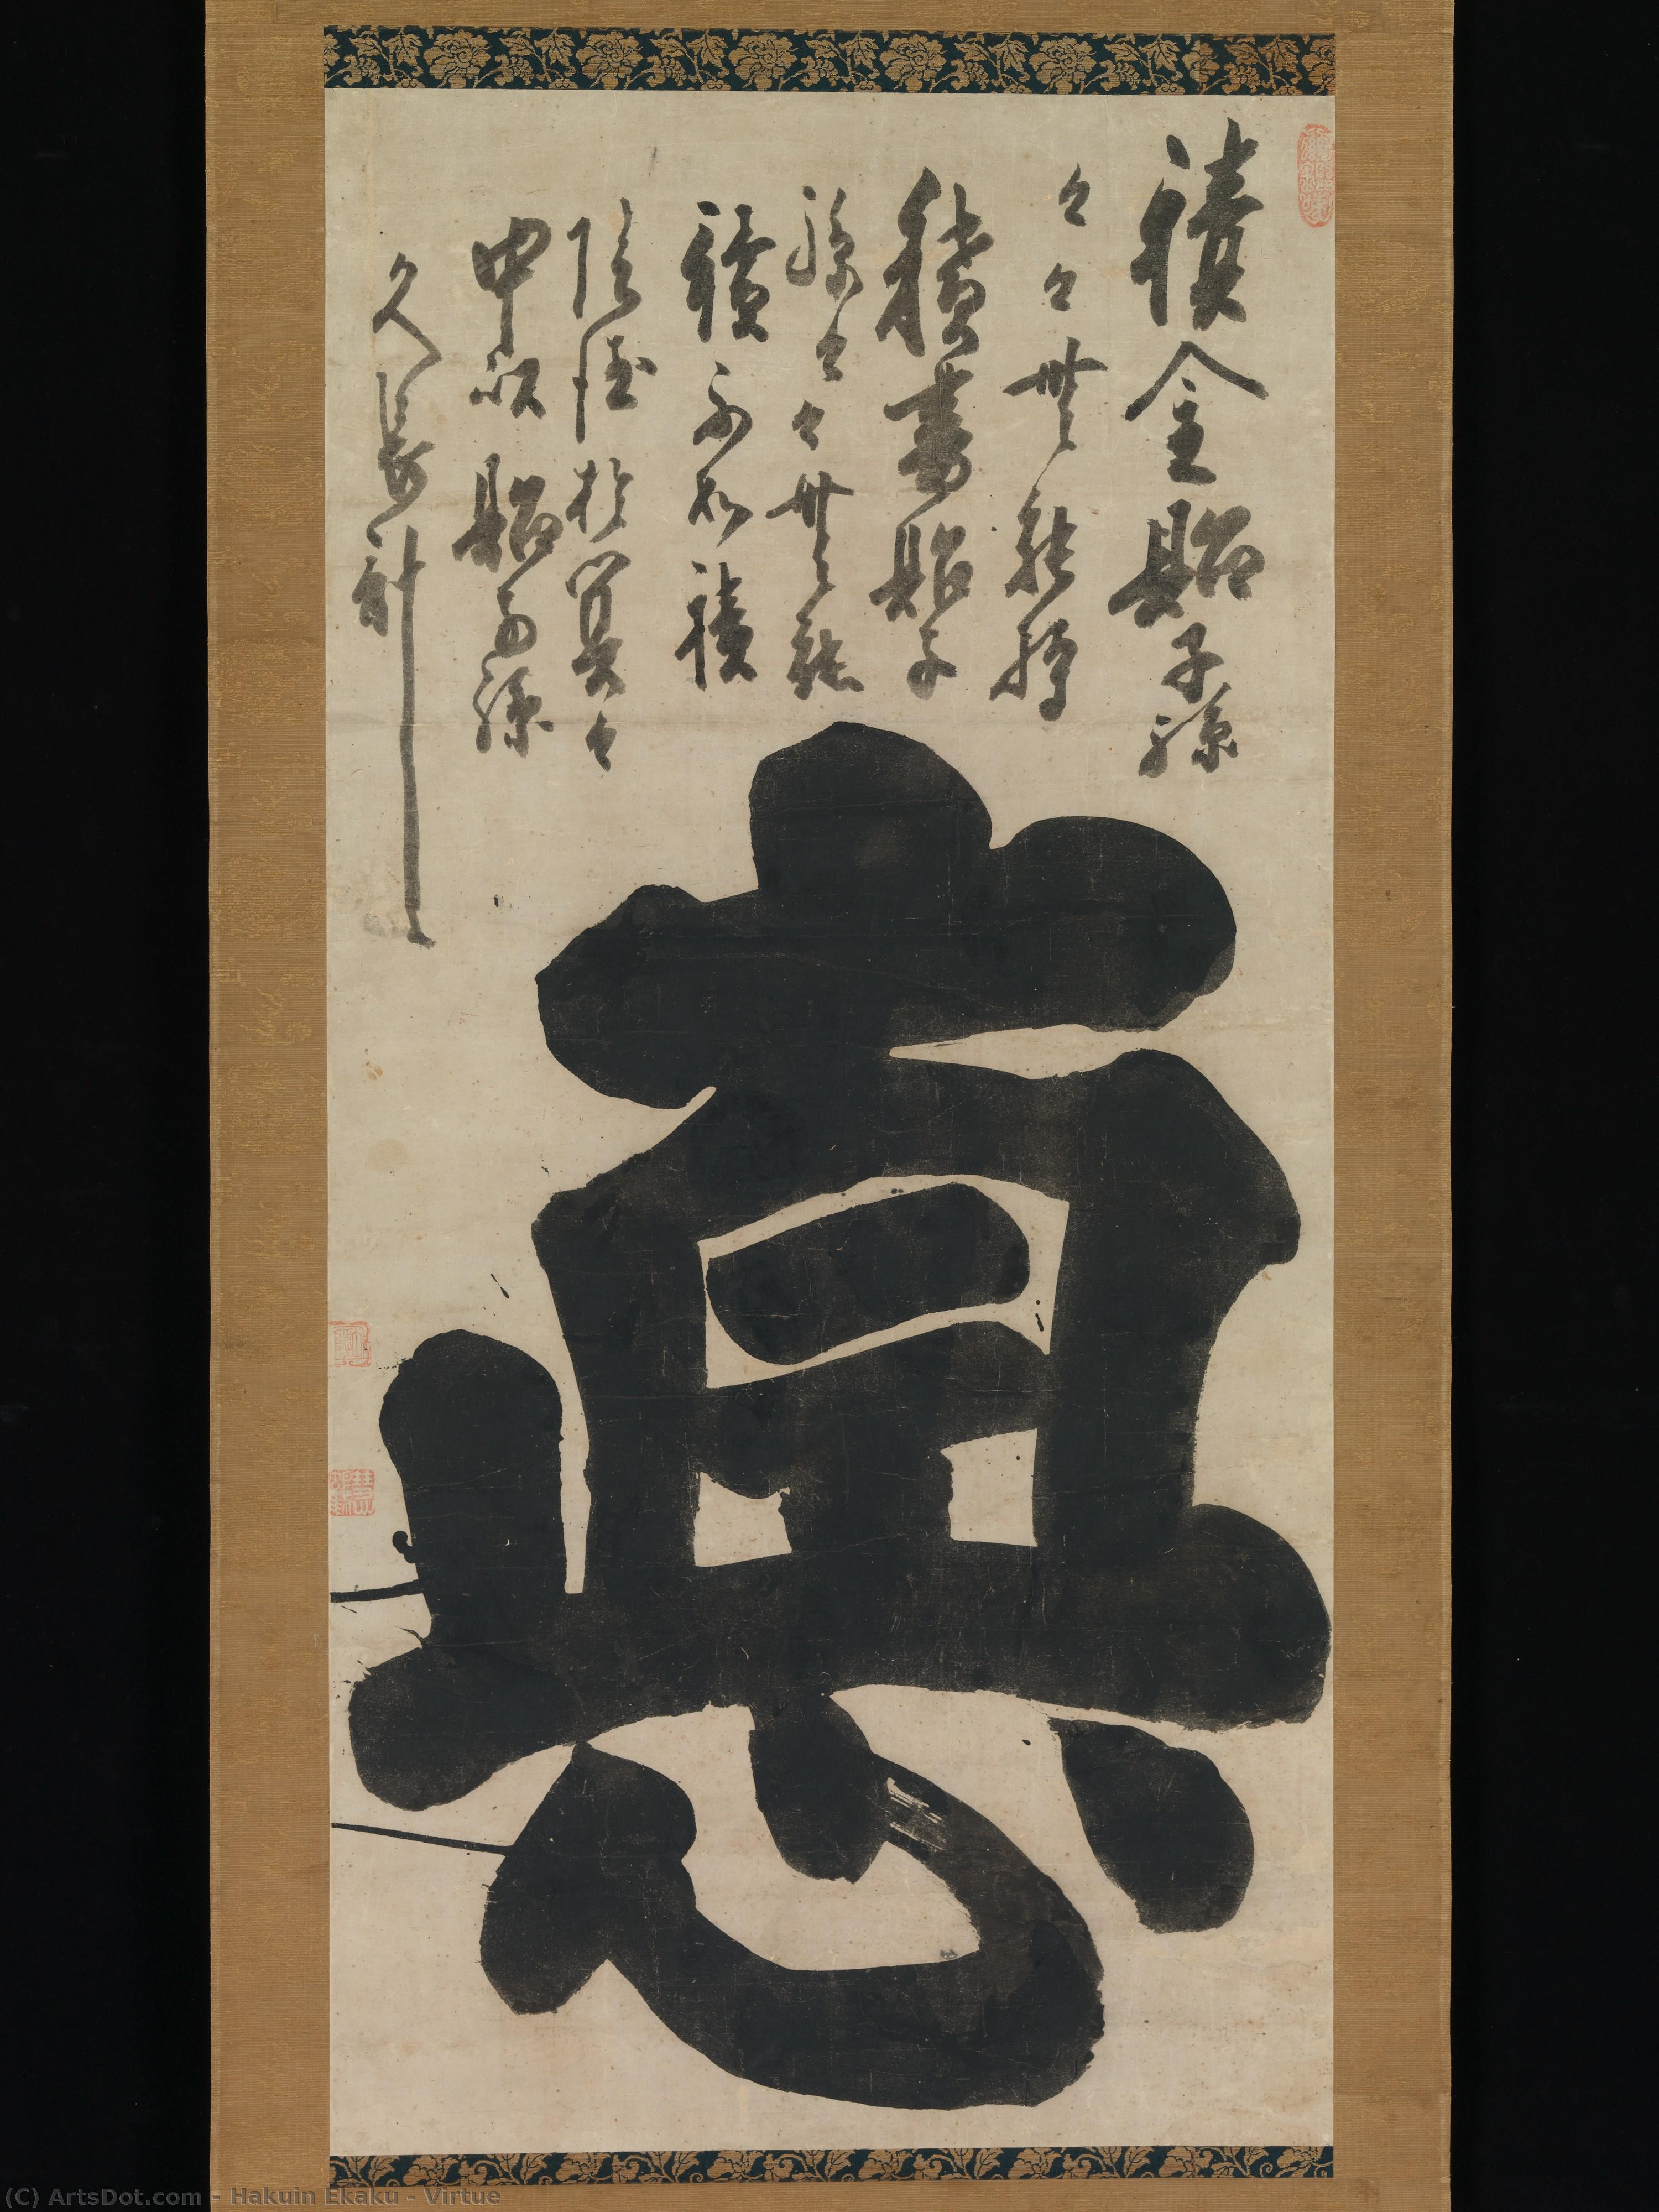 積金貽子孫
々々無能持
積書貽子
孫々々無能
讀不如積
陰德於冥々
中以貽子孫
久長計
悳
(C) ArtsDot.com - Hakuin Ekaku - Virtue